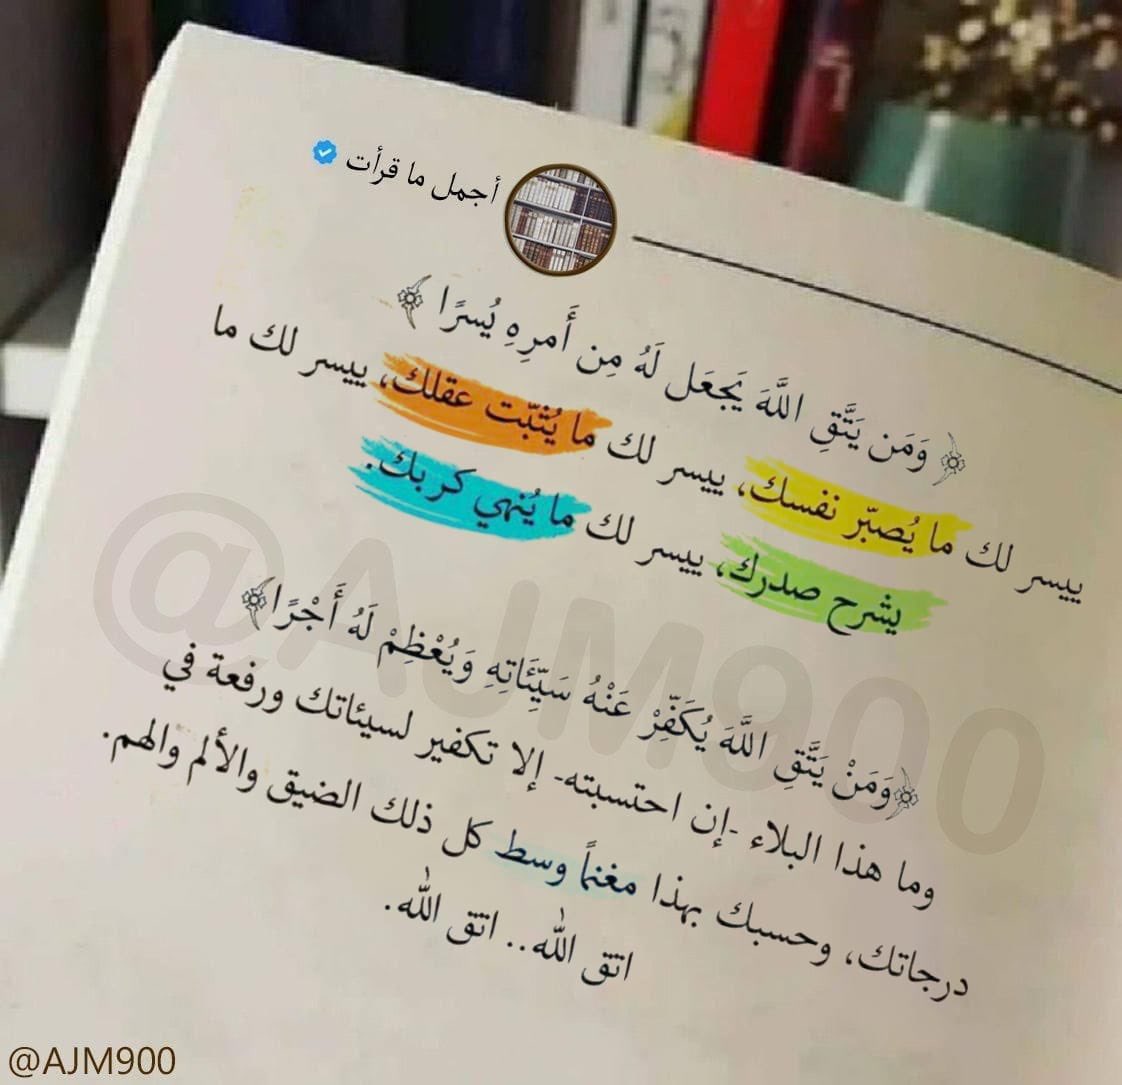 أجمل ما قرأت
﴿وَمَن يَتَّقِ اللَّهَ يَجعَل لَهُ مِن أَمرِهِ يُسرًا﴾
ييسر لك ما يُصبّر نفسك، ييسر لك ما يُثبّت عقلك، ييسر لك ما
يشرح صدرك، ييسر لك ما يُنهي كربك.
﴿وَمَنْ يَتَّقِ اللَّهَ يُكَفِّرْ عَنْهُ سَيِّئَاتِهِ وَيُعْظِمْ لَهُ أَجْرًا﴾
وما هذا البلاء -إن احتسبته- إلا تكفير لسيئاتك ورفعة في
درجاتك، وحسبك بهذا مغنماً وسط كل ذلك الضيق والألم والهم.
اتق الله.. اتق الله.
@AJM900
@AJM900